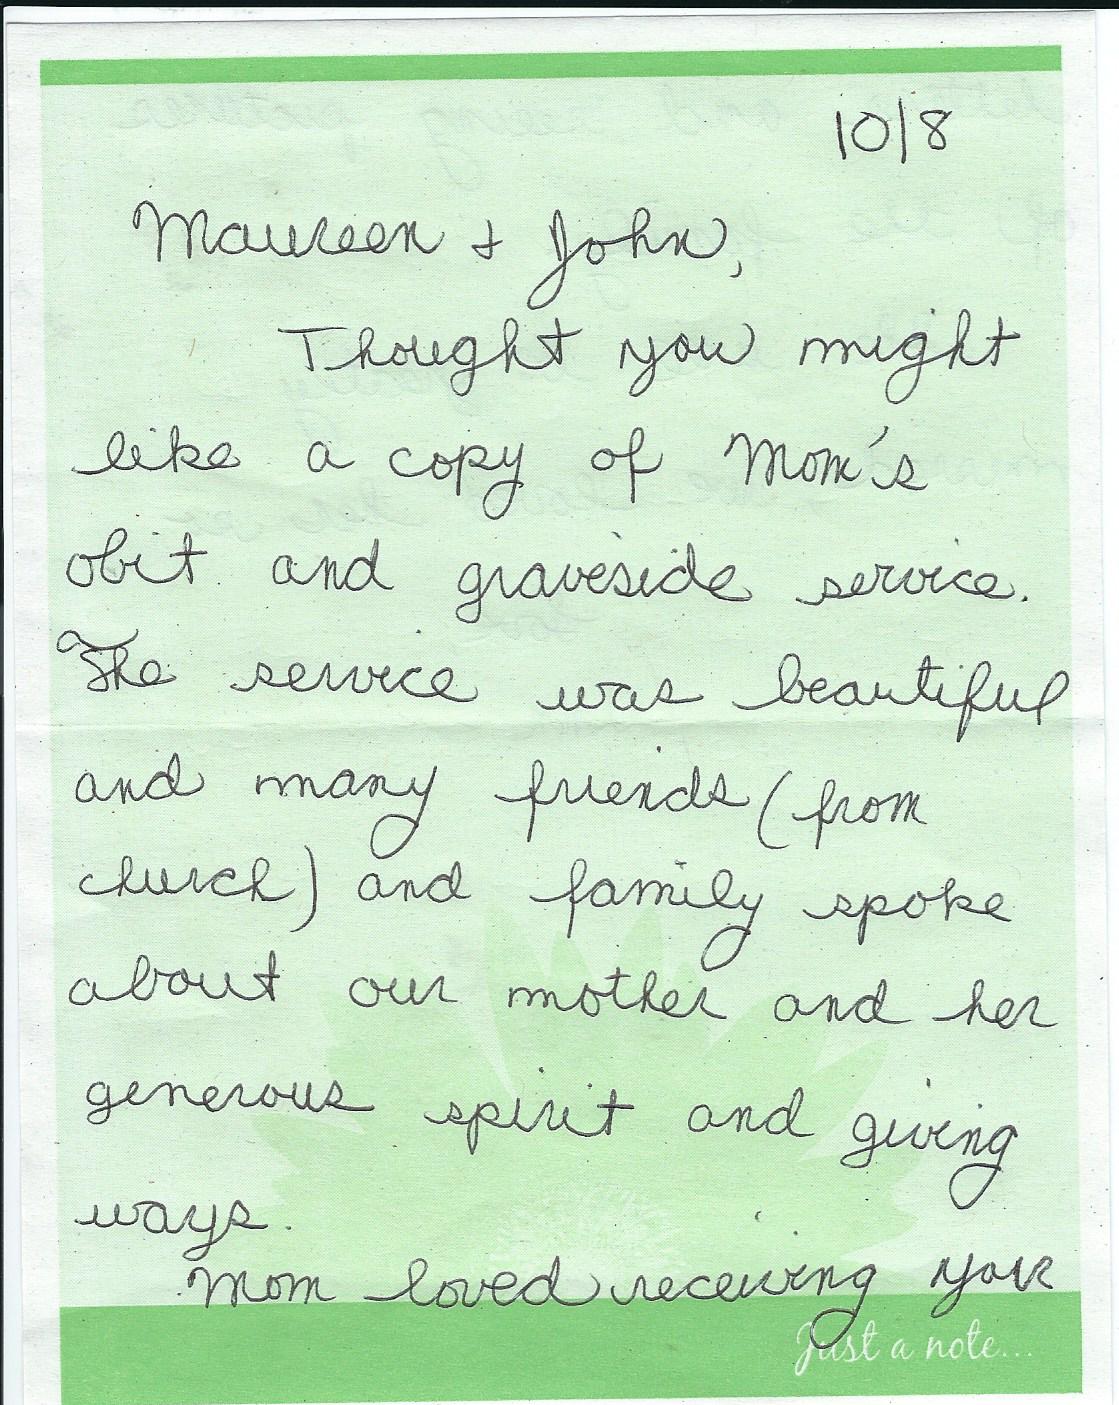 10/8
Maureen + John,
Thought you might
like a copy of Mom's
obit and graveside service.
The service was beautiful
and many friends (from
church) and family spoke
about our mother and her
generous spirit and giving
ways.
Mom loved receiving your
Just a note...